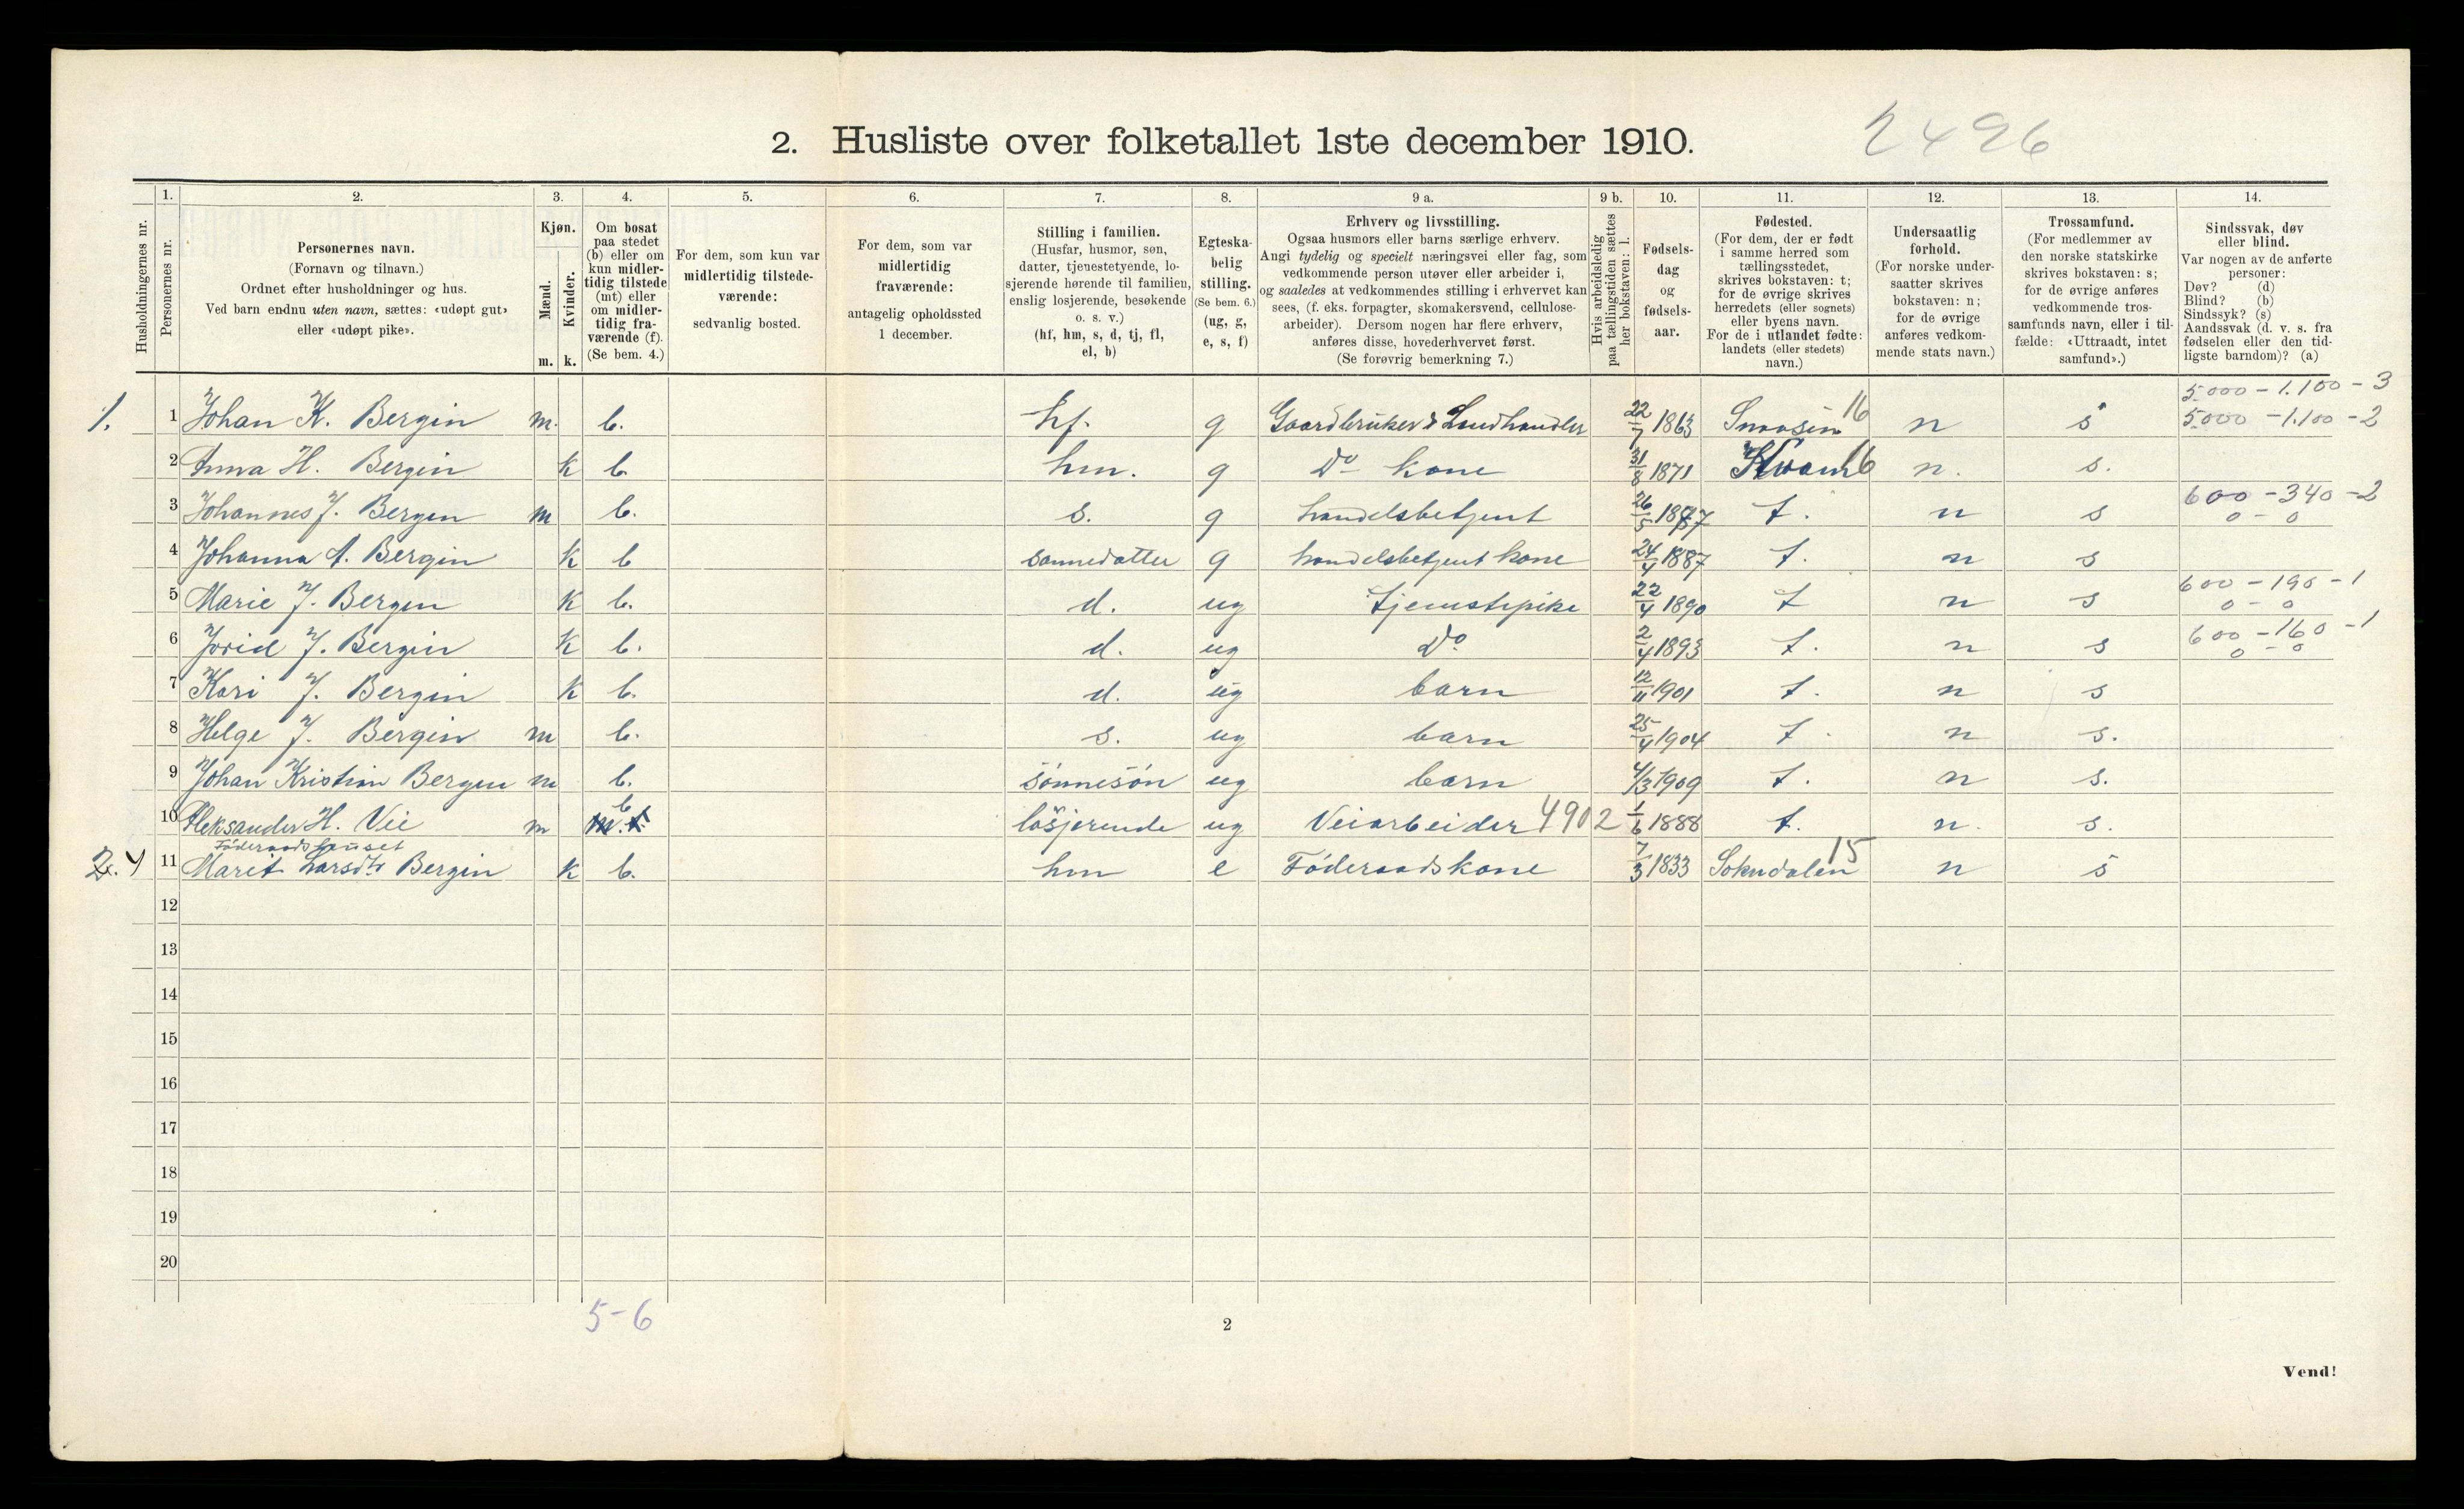 2. Husliste over folketallet 1ste december 1910.
2496
Husholdningernes nr.
1.
Personernes nr.
2.
Personernes navn.
(Fornavn og tilnavn.)
Ordnet efter husholdninger og hus.
Ved barn endnu uten navn, sættes: «udøpt gut»
eller «udøpt pike».
3.
Kjøn.
Mænd.
Kvinder.
m. k.
4.
Om bosat
paa stedet
(b) eller om
kun midler-
tidig tilstede
(mt) eller
om midler-
tidig fra-
værende (f).
(Se bem. 4.)
5.
For dem, som kun var
midlertidig tilstede-
værende:
sedvanlig bosted.
6.
For dem, som var
midlertidig
fraværende:
antagelig opholdssted
1 december.
7.
Stilling i familien.
(Husfar, husmor, søn,
datter, tjenestetyende, lo-
sjerende hørende til familien,
enslig losjerende, besøkende
o. s. v.)
(hf, hm, s, d, tj, fl,
el, b)
8.
Egteska-
belig
stilling.
(Se bem. 6.)
(ug, g,
e, s, f)
9 a.
Erhverv og livsstilling.
Ogsaa husmors eller barns særlige erhverv.
Angi tydelig og specielt næringsvei eller fag, som
vedkommende person utøver eller arbeider i,
og saaledes at vedkommendes stilling i erhvervet kan
sees, (f. eks. forpagter, skomakersvend, cellulose-
arbeider). Dersom nogen har flere erhverv,
anføres disse, hovederhvervet først.
(Se forøvrig bemerkning 7.)
9 b.
Hvis arbeidsledig
paa tællingstiden sættes
her bokstaven: l.
10.
Fødsels-
dag
og
fødsels-
aar.
11.
Fødested.
(For dem, der er født
i samme herred som
tællingsstedet,
skrives bokstaven: t;
for de øvrige skrives
herredets (eller sognets)
eller byens navn.
For de i utlandet fødte:
landets (eller stedets)
navn.)
12.
Undersaatlig
forhold.
(For norske under-
saatter skrives
bokstaven: n;
for de øvrige
anføres vedkom-
mende stats navn.)
13.
Trossamfund.
(For medlemmer av
den norske statskirke
skrives bokstaven: s;
for de øvrige anføres
vedkommende tros-
samfunds navn, eller i til-
fælde: «Uttraadt, intet
samfund».)
14.
Sindssvak, døv
eller blind.
Var nogen av de anførte
personer:
Døv? (d)
Blind? (b)
Sindssyk? (s)
Aandssvak (d. v. s. fra
fødselen eller den tid-
ligste barndom)? (a)
5.000 - 1.100 - 3
1. 1 Johan K. Bergin m. b. hf. g Gaardbruker & Landhandler 22/7 1863 Snaasen 16 n s 5.000 - 1.100 - 2
2 Anna H. Bergin k b. hm. g Do kone 31/8 1871 Kvam 16 n. s.
600 - 340 - 2
3 Johannes J. Bergin m b. s. g handelsbetjent 26/5 1887 t. n s 0 - 0
4 Johanna A. Bergin k b sønnedatter g handelsbetjent kone 24/4 1887 t. n s
600 - 190 - 1
5 Marie J. Bergin k b. d. ug tjenestepike 22/4 1890 t n s 0 - 0
600 - 160 - 1
6 Jorid J. Bergin k b. d. ug Do 2/4 1893 t. n s 0 - 0
7 Kari J. Bergin k b. d. ug barn 12/11 1901 t. n s
8 Helge J. Bergin m b. s. ug barn 25/4 1904 t. n s.
9 Johan Kristian Bergin m b. sönnesön ug barn 4/3 1909 t. n s.
10 Aleksander H. Vie m b losjerende ug Veiarbeider 4902 1/6 1888 t. n. s.
Föderaadshuset
2. 11 Marit Larsdtr Bergin k b. hm e Föderaadskone 7/3 1833 Sokndalen 15 n s
12
13
14
15
16
17
18
19
20
5-6
2
Vend!